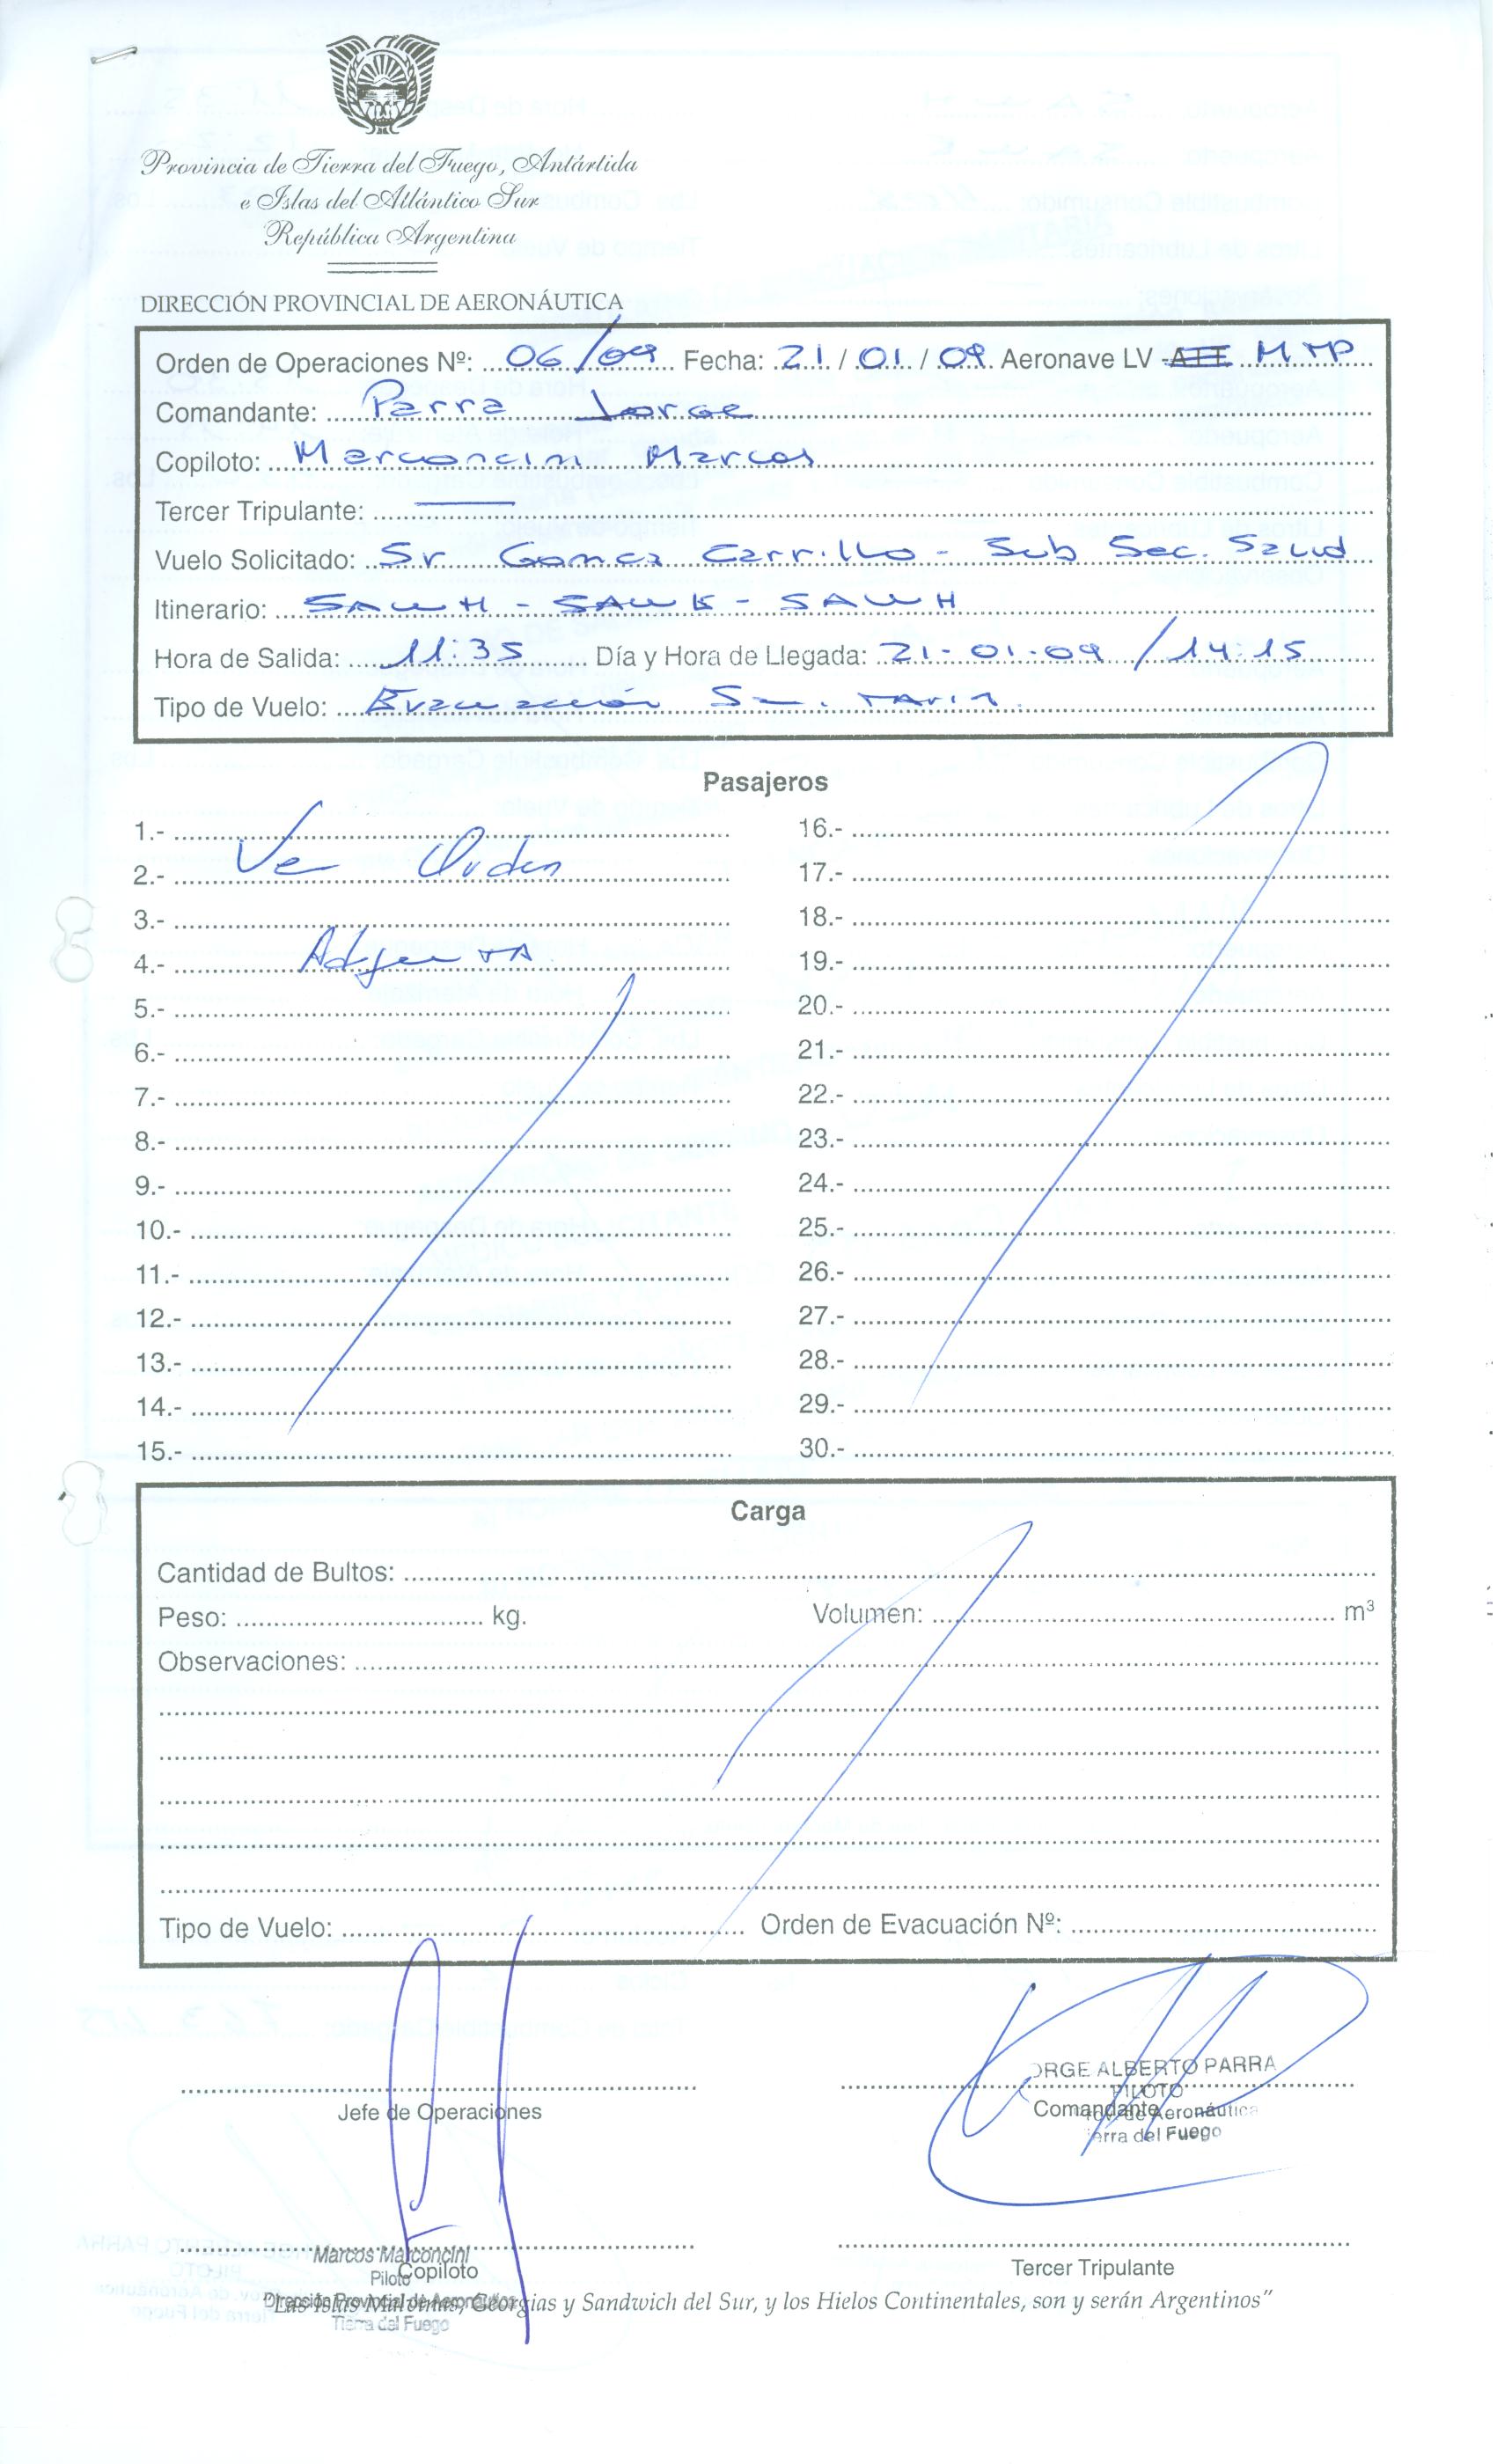 Provincia de Tierra del Fuego, Antártida
e Islas del Atlántico Sur
República Argentina
DIRECCIÓN PROVINCIAL DE AERONÁUTICA
Orden de Operaciones Nº: 06/09 Fecha: 21 / 01 / 09 Aeronave LV - MTP
Comandante: Parra Jorge
Copiloto: Marconcini Marcos
Tercer Tripulante:
Vuelo Solicitado: Sr Gomez Carrillo - Sub Sec. Salud
Itinerario: SAWH - SAWE - SAWH
Hora de Salida: 11:35 Día y Hora de Llegada: 21-01-09 / 14:15
Tipo de Vuelo: Evacuación Sanitaria
Pasajeros
1.- 16.-
2.- Ver Orden 17.-
3.- 18.-
4.- Adjunta 19.-
5.- 20.-
6.- 21.-
7.- 22.-
8.- 23.-
9.- 24.-
10.- 25.-
11.- 26.-
12.- 27.-
13.- 28.-
14.- 29.-
15.- 30.-
Carga
Cantidad de Bultos:
Peso: kg. Volumen: m³
Observaciones:
Tipo de Vuelo: Orden de Evacuación Nº:
ORGE ALBERTO PARRA
PILOTO
Jefe de Operaciones Comandante
rov. de Aeronáutica
ierra del Fuego
Marcos Marconcini
Piloto
Copiloto Tercer Tripulante
Dirección Provincial de Aeronáutica
"Las Islas Malvinas, Georgias y Sandwich del Sur, y los Hielos Continentales, son y serán Argentinos"
Tierra del Fuego